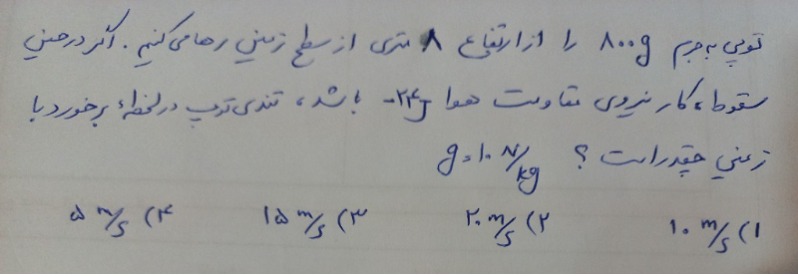 توپی به جرم ۸۰۰g را از ارتفاع ۸ متری از سطح زمین رها می کنیم. اگر در حین
سقوط، کار نیروی مقاومت هوا ۲۴J- باشد، تندی توپ در لحظهٔ برخورد با
زمین چقدر است؟ g=۱۰ N/kg
۱) ۱۰ m/s ۲) ۲۰ m/s ۳) ۱۵ m/s ۴) ۵ m/s